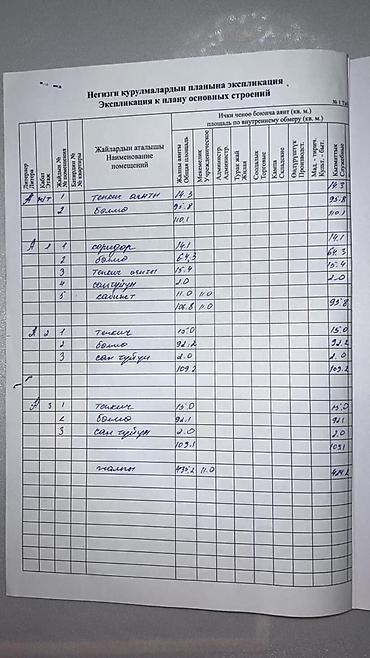 Негизги курулмалардын планына экспликация
Экспликация к плану основных строений
№ 1 Таб
Литерлер Литера
Кабат Этаж
Жайдын № № помещения
Батирдин № № квартиры
Жайлардын аталышы Наименование помещений
Ички ченөө боюнча аянт (кв. м.)
площадь по внутреннему обмеру (кв. м.)
Жалпы аянты Общая площадь
Мекемелик Учрежденческие
Администр. Администр.
Турак жай Жилая
Соодалык Торговые
Кампа Складские
Өндүрүштүк Производст.
Мад. - тирич. Культ. - быт.
Кызматтык Служебные
А 1 14.3 14.3
2 бөлмө 95.8 95.8
110,1 110.1
А 1 1 коридор 14.1 14.1
2 бөлмө 64,3 64.3
3 15.4 15.4
4 сантүйүн 2.0 2.0
5 кабинет 11.0 11.0
106.8 11.0 95.8
А 2 1 тепкич 15.0 15.0
2 бөлмө 92.2 92.2
3 сан түйүн 2.0 2.0
109.2 109.2
А 3 1 тепкич 15.0 15.0
2 бөлмө 92.1 92.1
3 сан түйүн 2.0 2.0
109.1 109.1
жалпы 435.2 11.0 424.2